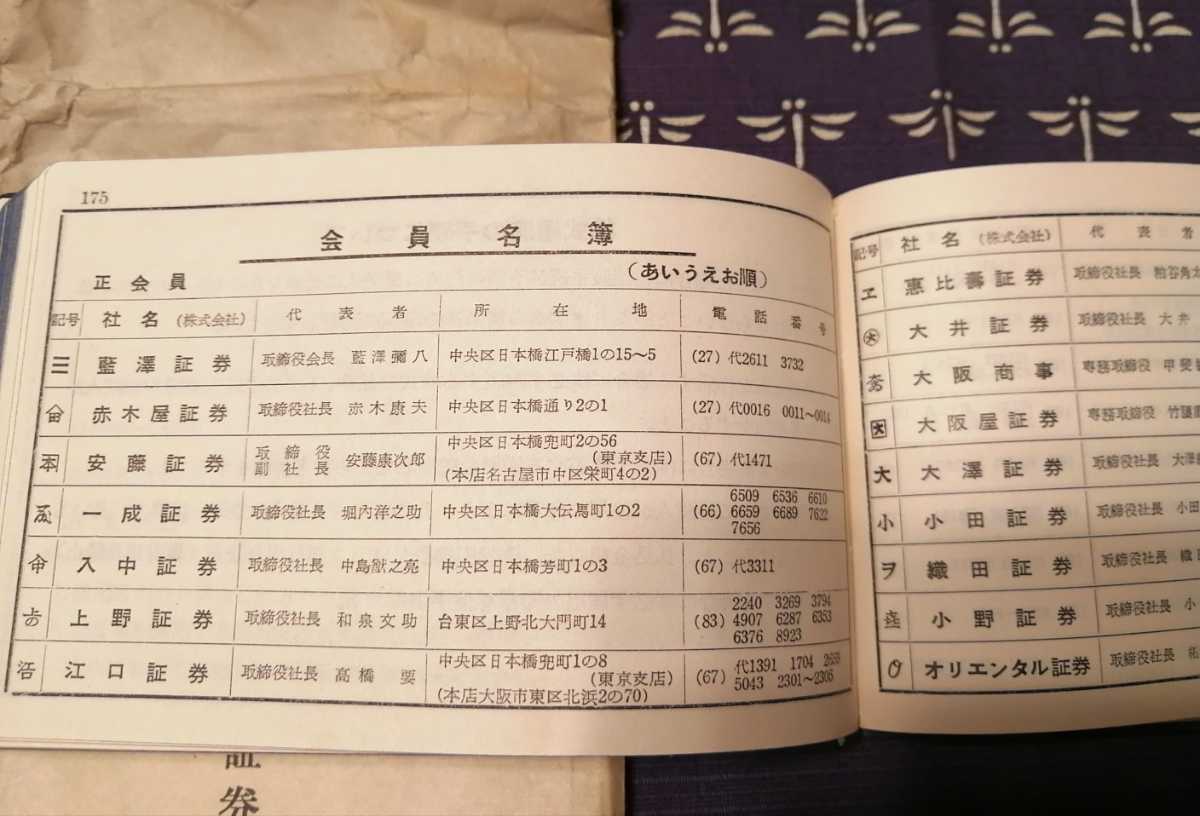 175
会員名簿
正会員 (あいうえお順)
記号 社名 (株式会社) 代表者 所在地 電話番号
三 藍澤証券 取締役会長 藍澤彌八 中央区日本橋江戸橋1の15〜5 (27) 代2611 3732
赤木屋証券 取締役社長 赤木康夫 中央区日本橋通り2の1 (27) 代0016 0011〜0014
安藤証券 取締役副社長 安藤康次郎 中央区日本橋兜町2の56 (東京支店) (本店名古屋市中区栄町4の2) (67) 代1471
一成証券 取締役社長 堀内洋之助 中央区日本橋大伝馬町1の2 (66) 6509 6536 6610 6659 6689 7622 7656
入中証券 取締役社長 中島獣之亮 中央区日本橋芳町1の3 (67) 代3311
上野証券 取締役社長 和泉文助 台東区上野北大門町14 (83) 2240 3269 3794 4907 6287 6353 6376 8923
江口証券 取締役社長 高橋要 中央区日本橋兜町1の8 (東京支店) (本店大阪市東区北浜2の70) (67) 代1391 1704 2659 5043 2301〜2306
記号 社名 (株式会社) 代表者
ヱ 恵比壽証券 取締役社長 粕谷角太
大井証券 取締役社長 大井
大阪商事 専務取締役 甲斐
大阪屋証券 専務取締役 竹
大 大澤証券 取締役社長 大澤
小 小田証券 取締役社長 小田
ヲ 織田証券 取締役社長 織田
小野証券 取締役社長 小
オリエンタル証券 取締役社長
証
券